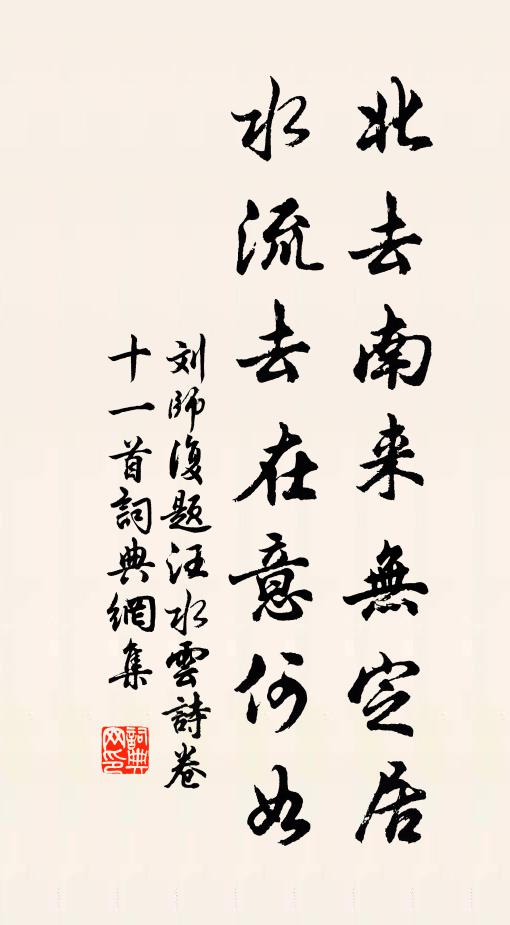 北去南来無定居
水流去在意何如
刘師復题汪水雲詩卷
十一首詞典網集
詞典網印